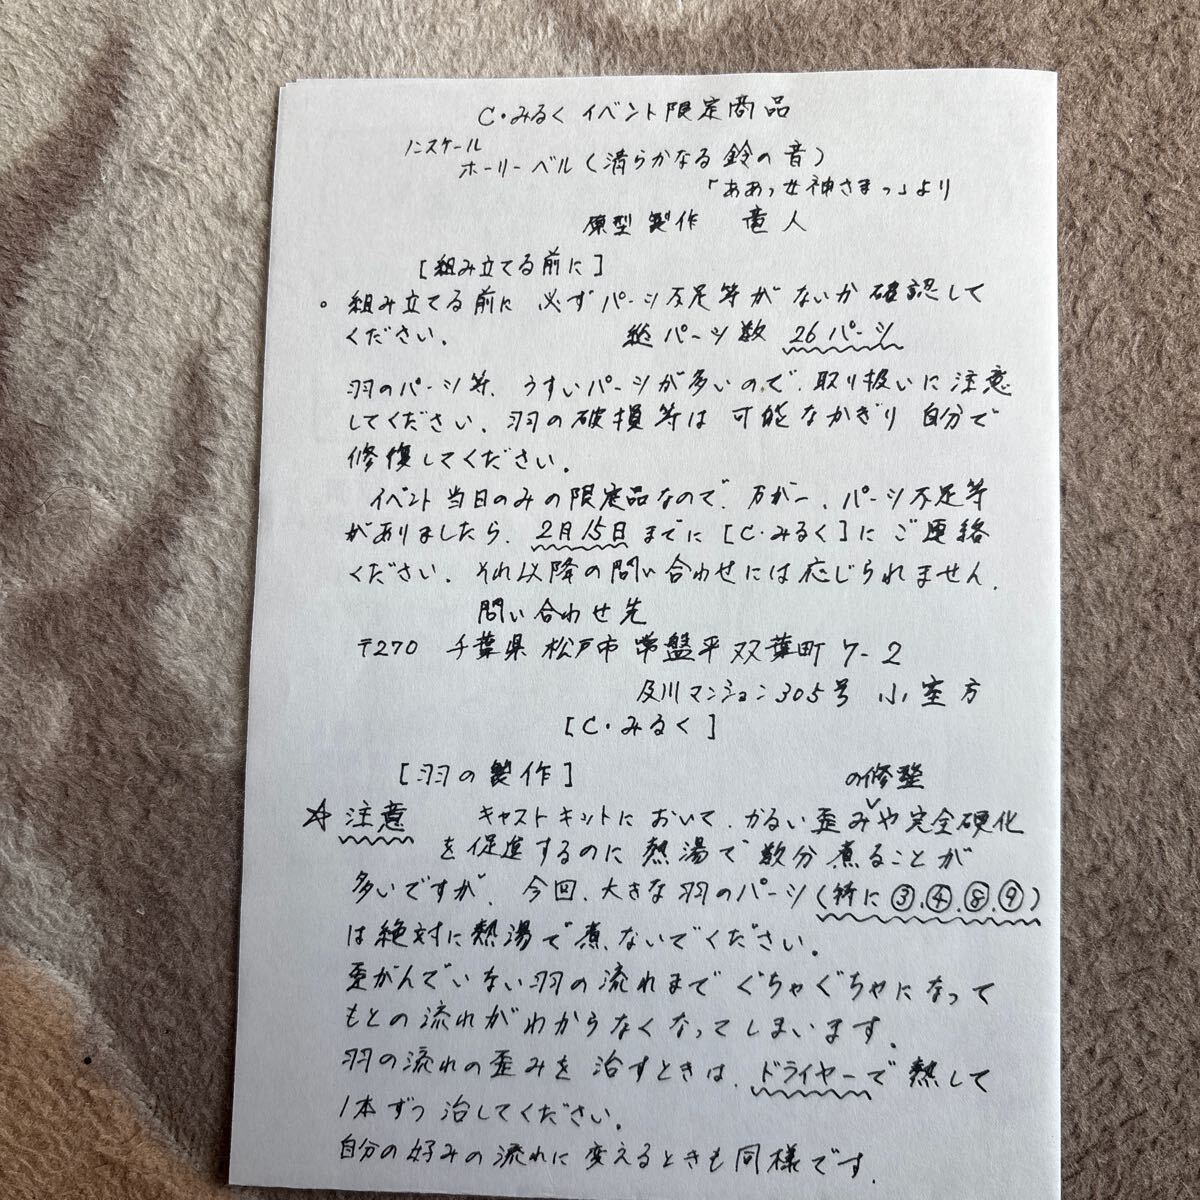 C・みるく イベント限定商品
ノンスケール
ホーリーベル(清らかなる鈴の音)
「ああっ女神さまっ」より
原型製作 竜人
[組み立てる前に]
。組み立てる前に 必ずパーツ不足等がないか確認して
ください。 総パーツ数 26パーツ
羽のパーツ等、うすいパーツが多いので、取り扱いに注意
してください、羽の破損等は可能なかぎり自分で
修復してください。
イベント当日のみの限定品なので、万が一、パーツ不足等
がありましたら、2月15日までに[C・みるく]にご連絡
ください。それ以降の問い合わせには応じられません。
問い合わせ先
〒270 千葉県松戸市常盤平双葉町7-2
及川マンション305号 小室方
[C・みるく]
[羽の製作]
の修整
☆注意 キャストキットにおいて、かるい歪みや完全硬化
を促進するのに熱湯で数分煮ることが
多いですが、今回、大きな羽のパーツ(特に③,④,⑧,⑨)
は絶対に熱湯で煮ないでください。
歪がんでいない羽の流れまでぐちゃぐちゃになって
もとの流れがわからなくなってしまいます。
羽の流れの歪みを治すときは、ドライヤーで熱して
1本ずつ治してください。
自分の好みの流れに変えるときも同様です。